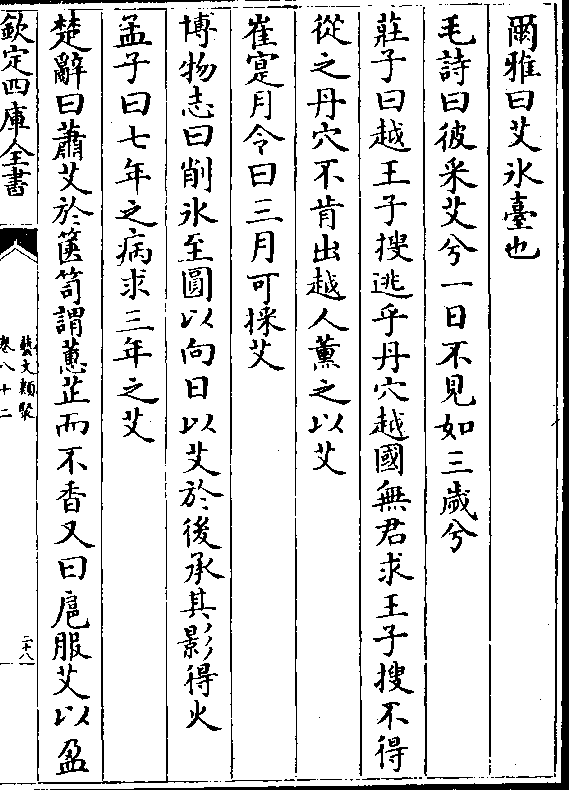 爾雅曰艾氷臺也
毛詩曰彼采艾兮一日不見如三歲兮
莊子曰越王子搜逃乎丹穴越國無君求王子搜不得
從之丹穴不肯出越人薰之以艾
崔寔月令曰三月可採艾
博物志曰削氷至圓以向日以艾於後承其影得火
孟子曰七年之病求三年之艾
楚辭曰蕭艾於篋笥謂蕙芷而不香又曰扈服艾以盈
欽定四庫全書
藝文類聚
卷八十二
二十八